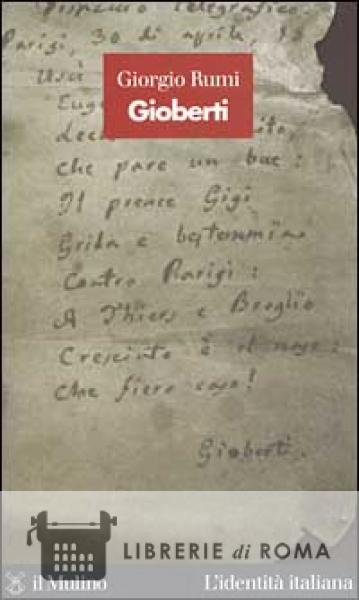 Dispaccio telegrafico.
Parigi, 30 di aprile, 18
Uscì
Giorgio Rumi
Gioberti
che pare un bue:
Il prence Gigi
Grida e bestemmia
Contro Parigi:
A Thiers e Broglio
Cresciuto è il naso:
Che fiero caso!
Gioberti.
LIBRERIE di ROMA
il Mulino
L'identità italiana